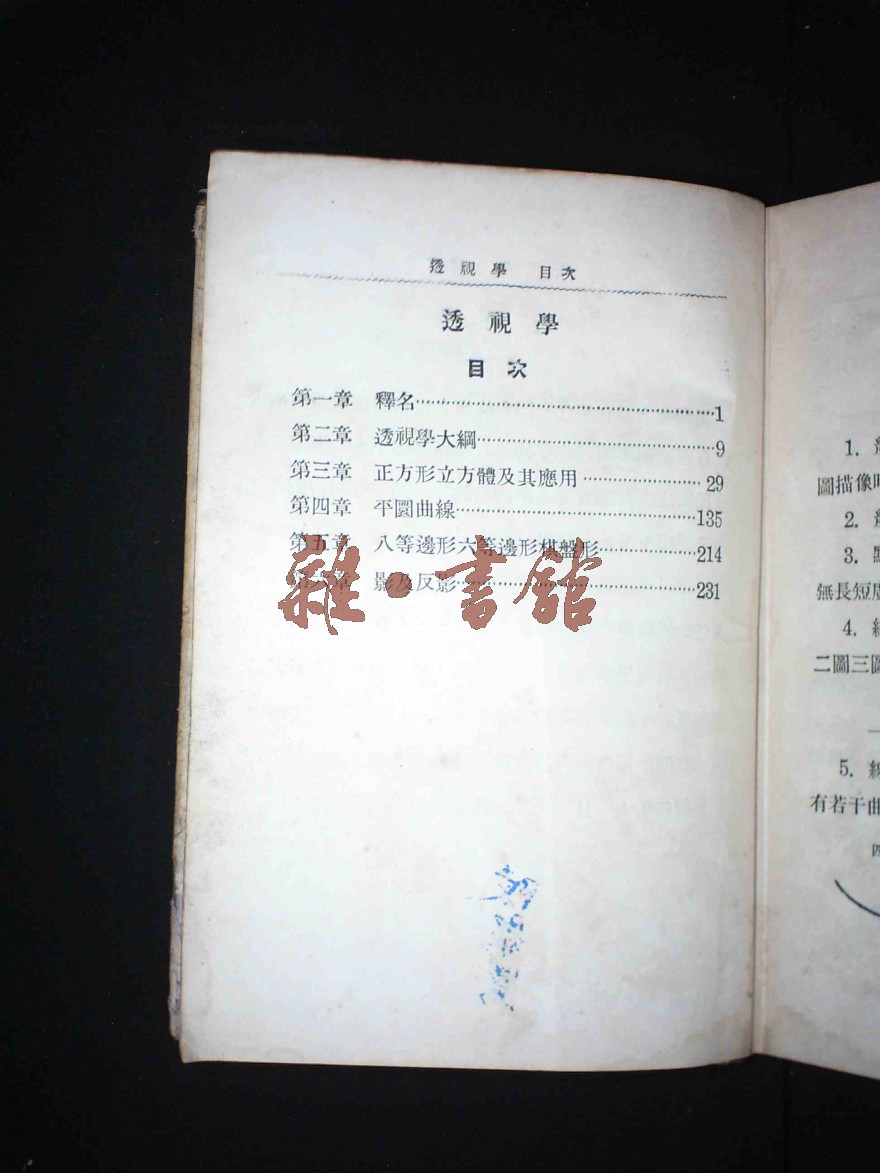 透視學 目次
透視學
目次
第一章 釋名……1
第二章 透視學大綱……9
第三章 正方形立方體及其應用……29
第四章 平圜曲線……135
第五章 八等邊形六等邊形棋盤形……214
第六章 影及反影……231
雜·書館
1.
圖描像
2.
3.
無長短
4.
二圖三
5.
有若干曲